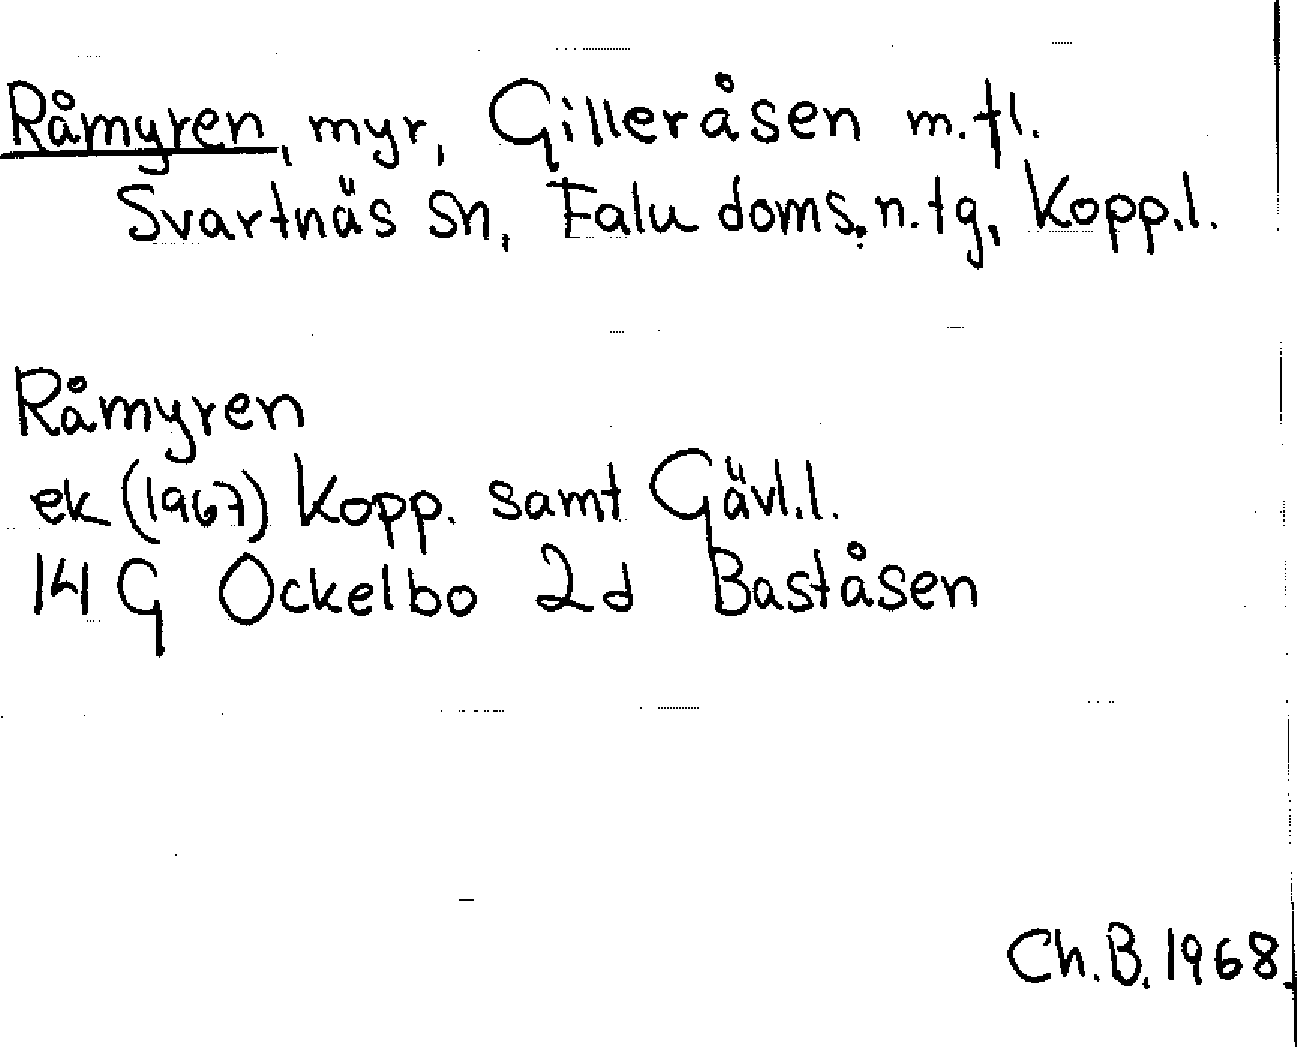 Råmyren, myr, Gilleråsen m.fl.
Svartnäs sn, Falu doms. n. tg, Kopp.l.
Råmyren
ek (1967) Kopp. samt Gävl.l.
14 G Ockelbo 2d Baståsen
Ch.B. 1968.